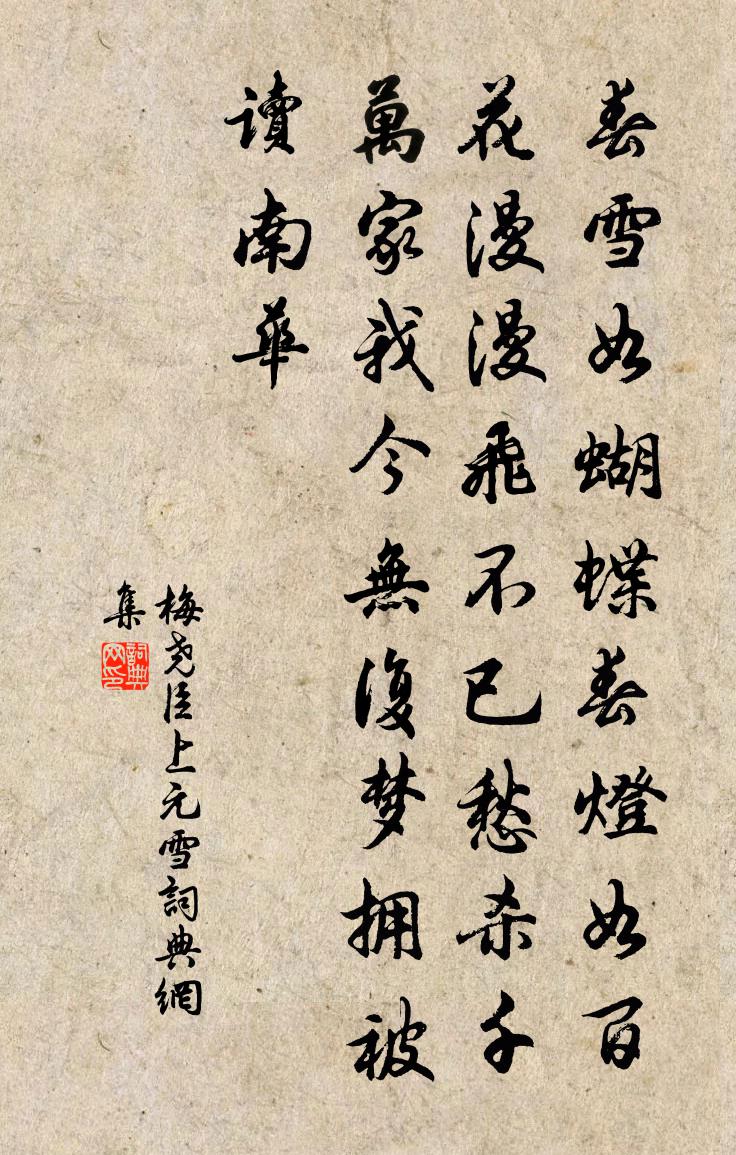 春雪如蝴蝶春燈如百
花漫漫飛不已愁杀千
萬家我今無復梦拥被
读南華
梅尧臣上元雪詞典網
集
詞典
网印